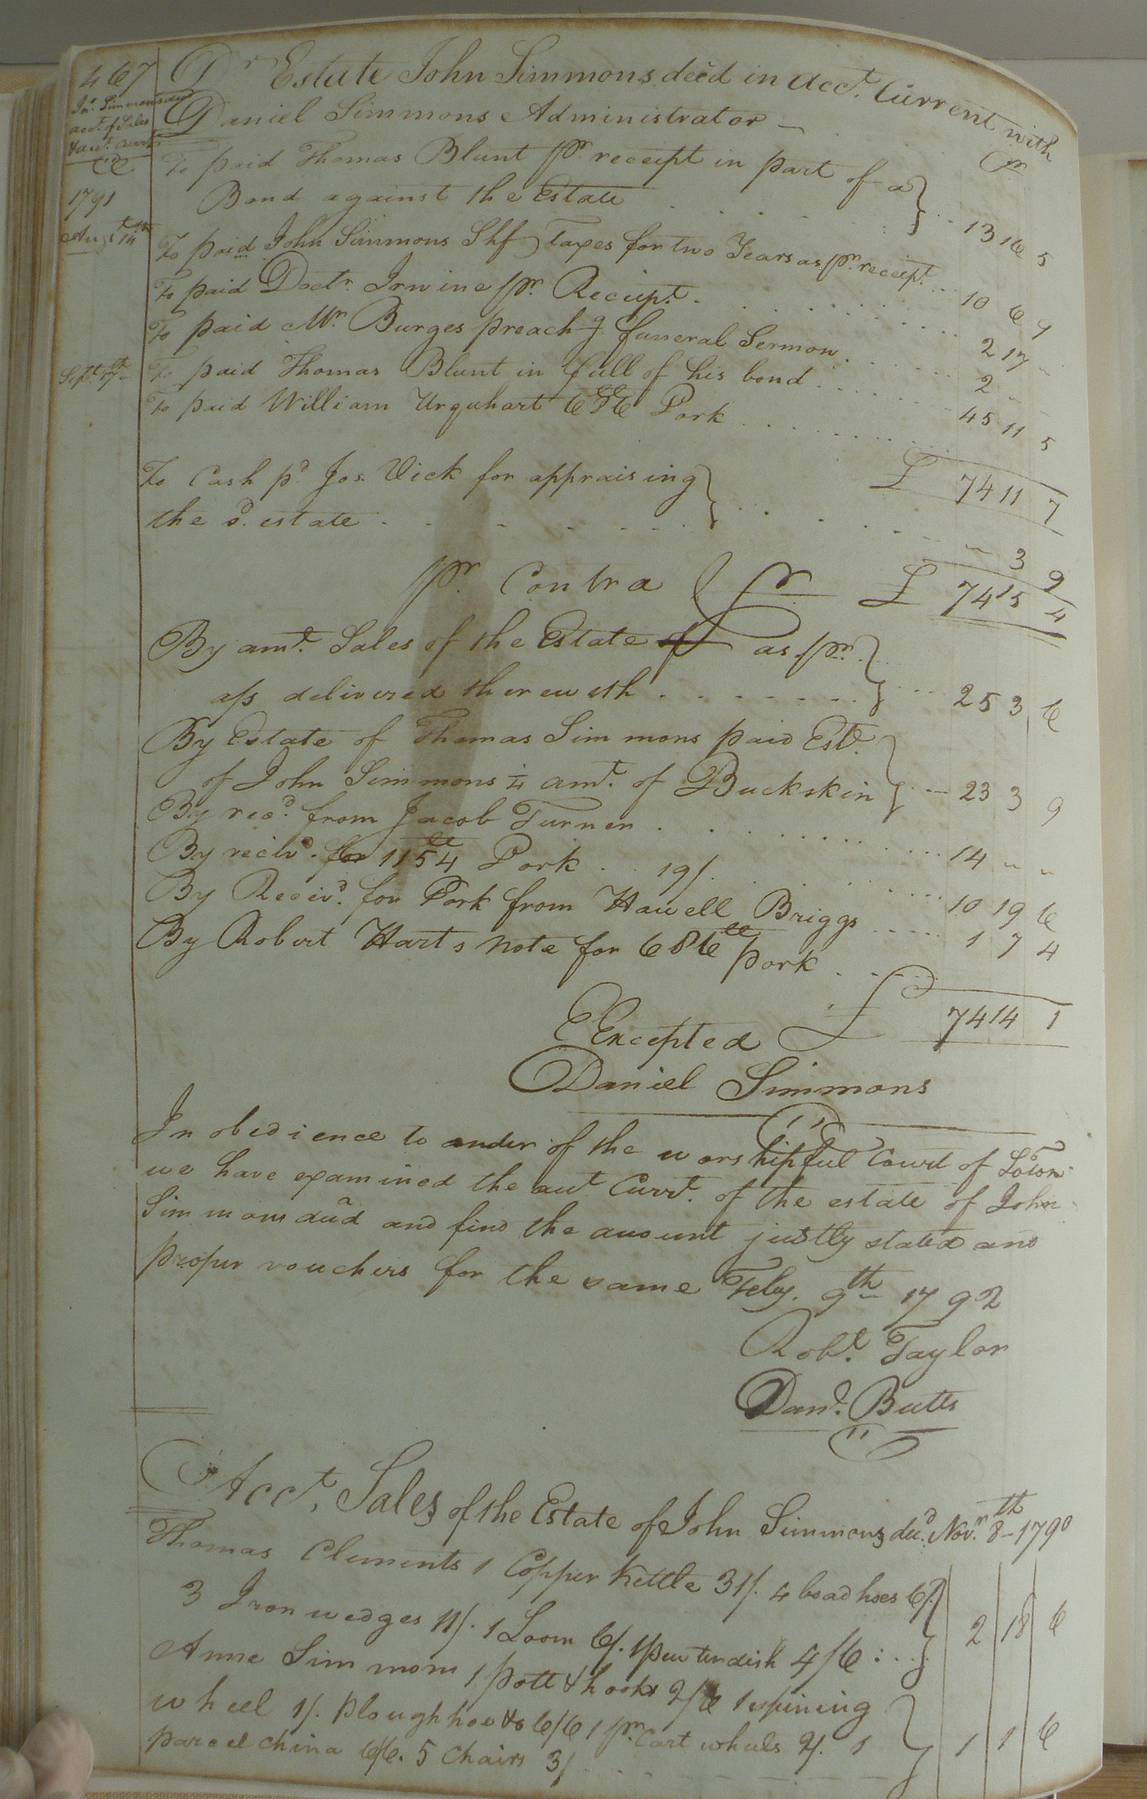 467
Jno. Simmons decd
acct. of Sales
& acct. Curr.
Dr Estate John Simmons decd in acct. Current with
Daniel Simmons Administrator — Cr
1791
Augst. 14th
To paid Thomas Blunt pr. receipt in part of a
Bond against the Estate . . . 13 16 5
To paid John Simmons Shf Taxes for two Years as pr. receipt . . 10 6 9
To paid Doctr. Irwine pr. Receipt. . . . 2 17 -
To paid Mr. Burges preachg. funeral Sermon . . . 2 - -
Sept. 17th
To paid Thomas Blunt in full of his bond . . . 45 11 5
To paid William Urquhart Pork . . .
£ 74 11 7
To Cash pd. Jos. Vick for appraising
the sd. estate . . . - 3 9
£ 74 15 4
Pr. Contra Cr
By amt. Sales of the Estate of as pr.
a/s delivered therewith . . . 25 3 6
By Estate of Thomas Simmons paid Este.
of John Simmons ¼ amt. of Buckskin - 23 3 9
By recd. from Jacob Turner . . . 14 - -
By recivd. for 1154 lb Pork . . 19/. . . 10 19 6
By Receivd. for Pork from Howell Briggs . . . 1 7 4
By Robert Harts note for 686 lb pork . . .
£ 74 14 1
E Excepted
Daniel Simmons
In obedience to order of the worshipful Court of Soton.
we have examined the aut Currt. of the estate of John
Simmons decd and find the auount justly stated and
proper vouchers for the same Feby. 9th 1792
Robt. Taylor
Danl. Butts
Acct. Sales of the Estate of John Simmons decd. Novr. 8th - 1790
Thomas Clements 1 Copper Kettle 31/. 4 boad hoes 6/.
3 Iron wedges 11/. 1 Loom 6/. 1 pewter dish 4/6 : . . 2 18 6
Anne Simmons 1 pott & hooks 2/6 1 spining
wheel 1/. Plough hoe &c 6/6 1 pr. Cart wheels 2/. 1
parcel china 6/6. 5 Chairs 3/ . . . 1 1 6